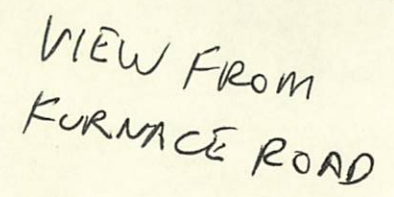 VIEW FROM
FURNACE ROAD